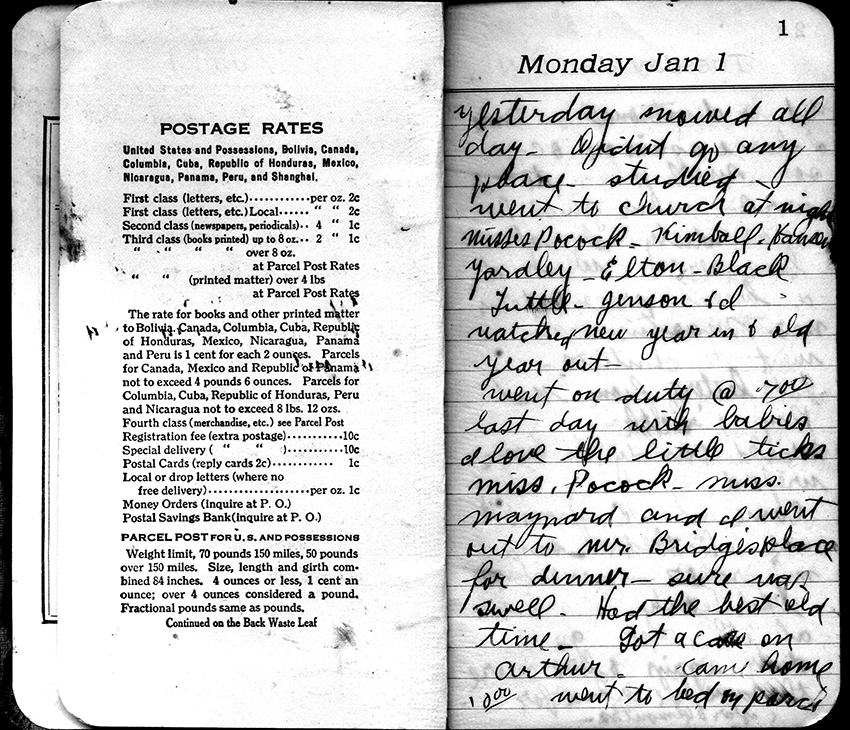 POSTAGE RATES
United States and Possessions, Bolivia, Canada,
Columbia, Cuba, Republic of Honduras, Mexico,
Nicaragua, Panama, Peru, and Shanghai.
First class (letters, etc.)............per oz. 2c
First class (letters, etc.) Local...... “ “ 2c
Second class (newspapers, periodicals).. 4 “ 1c
Third class (books printed) up to 8 oz... 2 “ 1c
“ “ “ “ over 8 oz.
at Parcel Post Rates
“ “ (printed matter) over 4 lbs
at Parcel Post Rates
The rate for books and other printed matter
to Bolivia, Canada, Columbia, Cuba, Republic
of Honduras, Mexico, Nicaragua, Panama
and Peru is 1 cent for each 2 ounces. Parcels
for Canada, Mexico and Republic of Panama
not to exceed 4 pounds 6 ounces. Parcels for
Columbia, Cuba, Republic of Honduras, Peru
and Nicaragua not to exceed 8 lbs. 12 ozs.
Fourth class (merchandise, etc.) see Parcel Post
Registration fee (extra postage)..........10c
Special delivery ( “ “ )..........10c
Postal Cards (reply cards 2c)........... 1c
Local or drop letters (where no
free delivery).....................per oz. 1c
Money Orders (inquire at P. O.)
Postal Savings Bank (inquire at P. O.)
PARCEL POST FOR U. S. AND POSSESSIONS
Weight limit, 70 pounds 150 miles, 50 pounds
over 150 miles. Size, length and girth com-
bined 84 inches. 4 ounces or less, 1 cent an
ounce; over 4 ounces considered a pound.
Fractional pounds same as pounds.
Continued on the Back Waste Leaf
1
Monday Jan 1
yesterday snowed all
day - I didnt go any
place - studied -
went to church at night
Misses Pocock - Kimball -
Yardley - Elton - Black
Tuttle - Jenson & I
watched new year in & old
year out -
went on duty @ 7 00
last day with babies
I love the little ticks
miss. Pocock - miss.
maynard and I went
out to mr. Bridges place
for dinner - sure was
swell. Had the best old
time - Got a case on
arthur. came home
10 00 went to bed on porch